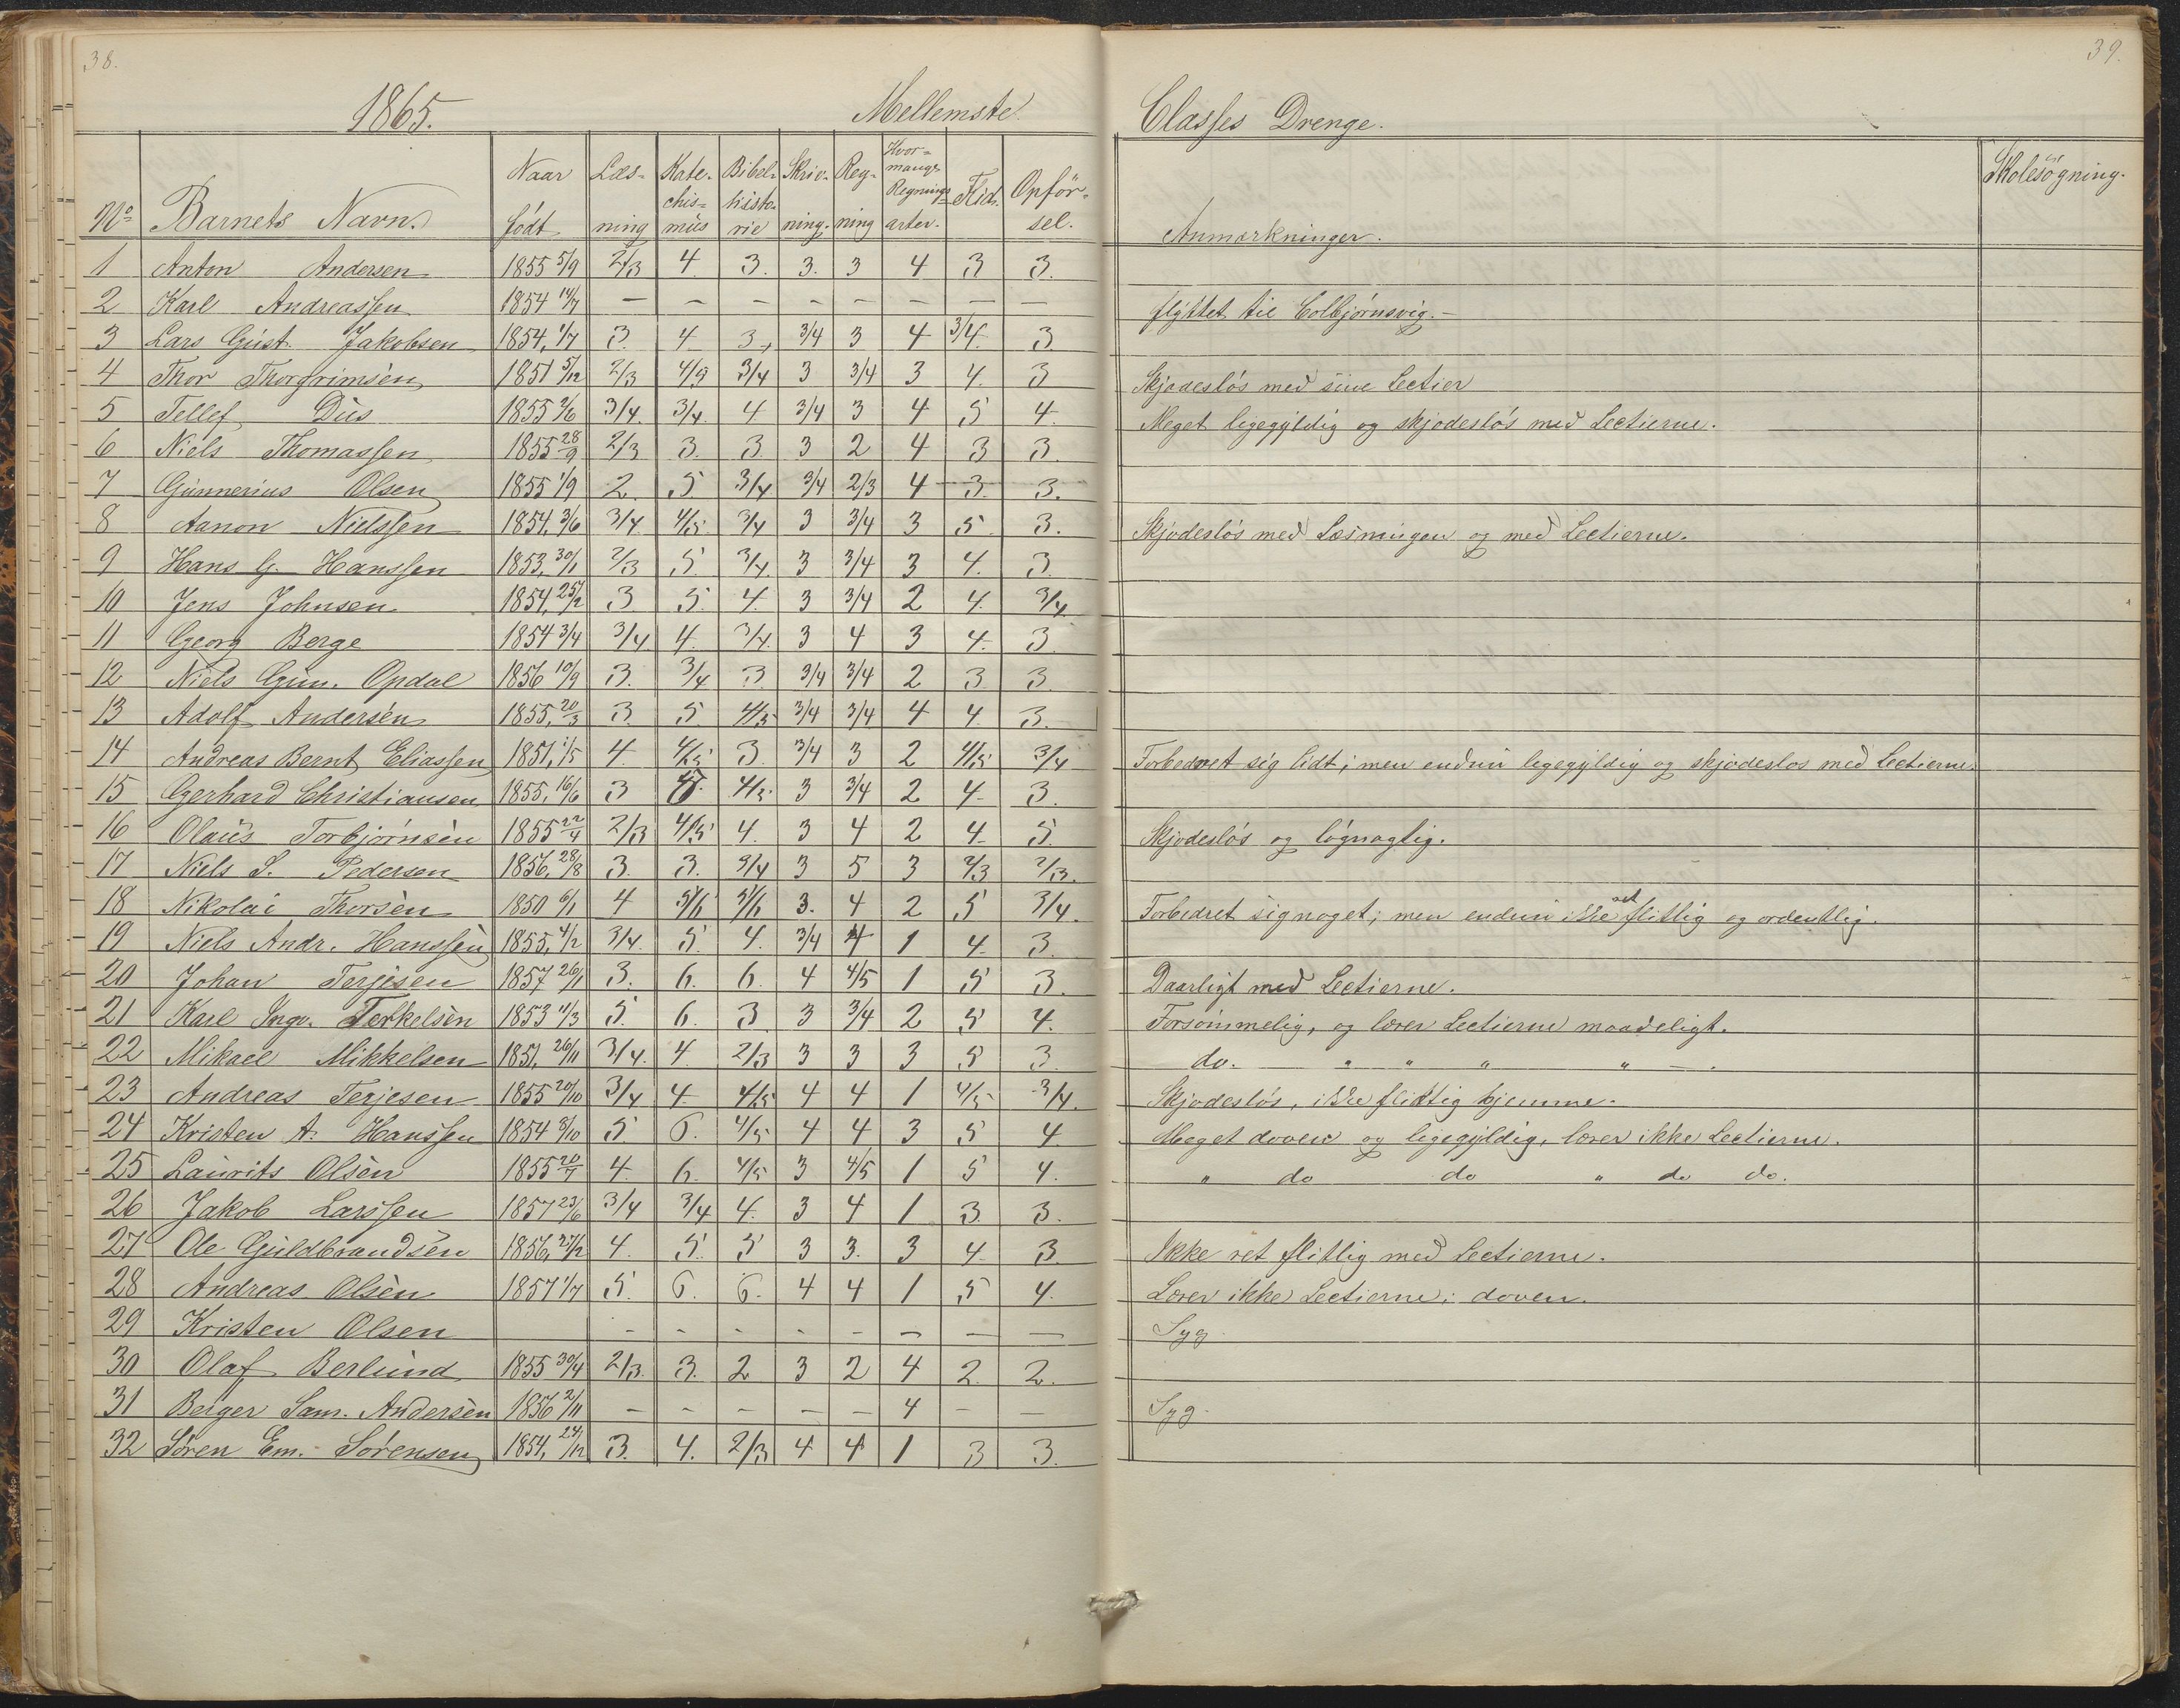 38.
39.
1865.
Mellemste
Classes Drenge.
No Barnets Navn. Naar født Læs- ning Kate- chis- mus Bibel- histo- rie Skriv- ning. Reg- ning Hvor- mange Regnings- arter. Flid. Opför- sel. Anmærkninger. Skolesøgning.
1 Anton Andersen 1855 5/9 2/3 4 3. 3. 3 4 3 3.
2 Karl Andreassen 1854 14/7 — — — — — — — — flyttet til Colbjørnsvig. —
3 Lars Gust. Jakobsen 1854, 1/7 3. 4 3, 3/4 3 4 3/4. 3
4 Thor Thorgrimsen 1851 5/12 2/3 4/5 3/4 3 3/4 3 4. 3 Skjødesløs med sine Lectier
5 Tellef Dus 1855 2/6 3/4. 3/4. 4 3/4 3 4 5 4. Meget ligegyldig og skjødesløs med Lectierne.
6 Niels Thomassen 1855 28/9 2/3 3. 3. 3 2 4 3 3.
7 Gunnerius Olsen 1855 1/9 2. 5 3/4. 3/4 2/3 4 3. 3.
8 Aanon Nielssen 1854, 3/6 3/4. 4/5. 3/4 3 3/4 3 5. 3. Skjødesløs med Læsningen og med Lectierne.
9 Hans G. Hanssen 1853, 30/1 2/3 5. 3/4. 3 3/4 3 4. 3.
10 Jens Johnsen 1854, 25/2 3 5. 4. 3 3/4 2 4. 3/4
11 Georg Berge 1854 3/4 3/4 4. 3/4. 3 4 3 4. 3
12 Niels Gun. Opdal 1856 10/9 3. 3/4 3 3/4 3/4 2 3 3
13 Adolf Andersen 1855, 20/3 3. 5 4/5 3/4 3/4 4 4. 3.
14 Andreas Bernt Eliassen 1851, 1/5 4. 4/5 3. 3/4 3 2 4/5 3/4 Forbedret sig lidt; men endnu ligegyldig og skjødesløs med Lectierne.
15 Gerhard Christiansen 1855, 16/6 3 4/5. 3 3/4 2 4. 3.
16 Olaus Torbjørnsen 1855 22/4 2/3 4/5 4. 3 4 2 4. 5. Skjødesløs og løgnagtig.
17 Niels S. Pedersen 1856, 28/8 3. 3. 3/4 3 5 3 2/3 2/3.
18 Nikolai Thorsen 1850 6/1 4 5/6 5/6 3. 4 2 5 3/4. Forbedret sig noget; men endnu ikke ret flittig og ordentlig.
19 Niels Andr. Hanssen 1855, 4/2 3/4. 5. 4. 3/4 4 1 4. 3.
20 Johan Terjesen 1857 26/1 3. 6. 6. 4 4/5 1 5 3. Daarligt med Lectierne.
21 Karl Ingv. Terkelsen 1853 11/3 5. 6. 3. 3 3/4 2 5 4. Forsømmelig, og lærer Lectierne maadeligt.
22 Mikael Mikkelsen 1851, 26/11 3/4. 4 2/3 3 3 3 5 3. do. " " " " — .
23 Andreas Terjesen 1855 20/10 3/4 4. 4/5 4 4 1 4/5 3/4. Skjødesløs, ikke flittig hjemme.
24 Kristen A. Hanssen 1854 8/10 5 6. 4/5 4 4 3 5 4. Meget doven og ligegyldig, lærer ikke Lectierne.
25 Laurits Olsen 1855 20/7 4. 6. 4/5 3 4/5 1 5 4. " do do " do do.
26 Jakob Larssen 1857 23/6 3/4 3/4 4. 3 4 1 3. 3.
27 Ole Guldbrandsen 1856, 27/2 4. 5. 5 3 3. 3 4. 3. Ikke ret flittig med Lectierne.
28 Andreas Olsen 1857 1/7 5. 6. 6. 4 4 1 5 4. Lærer ikke Lectierne; doven.
29 Kristen Olsen — — — — — — — — Syg
30 Olaf Berlund 1855 30/4 2/3. 3. 2 3 2 4 2. 2.
31 Berger Sam. Andersen 1856 2/11 — — — — — 4 — — Syg.
32 Søren Em. Sørensen 1854, 24/12 3. 4. 2/3 4 4 1 3 3.